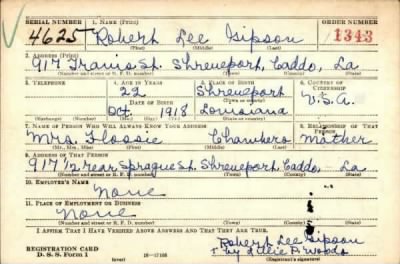 SERIAL NUMBER 1. NAME (Print) ORDER NUMBER
4625 Robert Lee Gipson 1343
(First) (Middle) (Last)
2. ADDRESS (Print)
917 Travis St. Shreveport, Caddo, La
(Number and street or R. F. D. number) (Town) (County) (State)
3. TELEPHONE 4. AGE IN YEARS 5. PLACE OF BIRTH 6. COUNTRY OF CITIZENSHIP
22 Shreveport
(Town or county)
DATE OF BIRTH U.S.A.
Oct 1918 Louisiana
(Exchange) (Number) (Mo.) (Day) (Yr.) (State or country)
7. NAME OF PERSON WHO WILL ALWAYS KNOW YOUR ADDRESS 8. RELATIONSHIP OF THAT PERSON
Mrs Flossie Mother
(Mr., Mrs., Miss) (First) (Middle) (Last)
9. ADDRESS OF THAT PERSON
917 Rear Sprague St. Shreveport, Caddo, La.
(Number and street or R. F. D. number) (Town) (County) (State)
10. EMPLOYER'S NAME
None
11. PLACE OF EMPLOYMENT OR BUSINESS
None
(Number and street or R. F. D. number) (Town) (County) (State)
I AFFIRM THAT I HAVE VERIFIED ABOVE ANSWERS AND THAT THEY ARE TRUE.
Robert Lee Gipson
REGISTRATION CARD
D. S. S. Form 1 16—17105 (Registrant's signature)